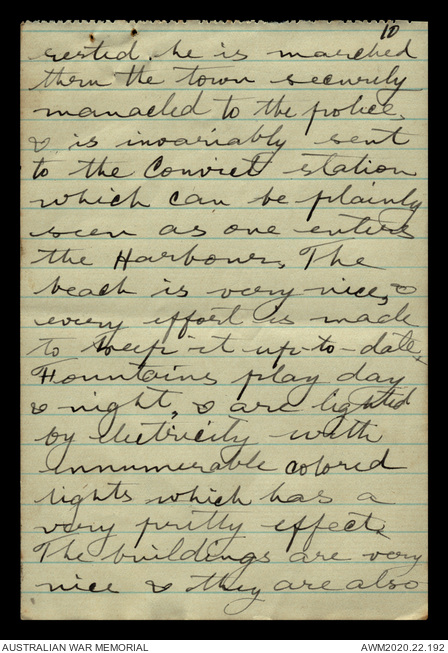 10
rested, he is marched
thru the town securely
manacled to the police,
& is invariably sent
to the Convict station
which can be plainly
seen as one enters
the Harbour. The
beach is very nice, &
every effort is made
to keep it up-to-date.
Fountains play day
& night, & are lighted
by electricity with
innumerable colored
lights which has a
very pretty effect.
The buildings are very
nice & they are also
AUSTRALIAN WAR MEMORIAL
AWM2020.22.192